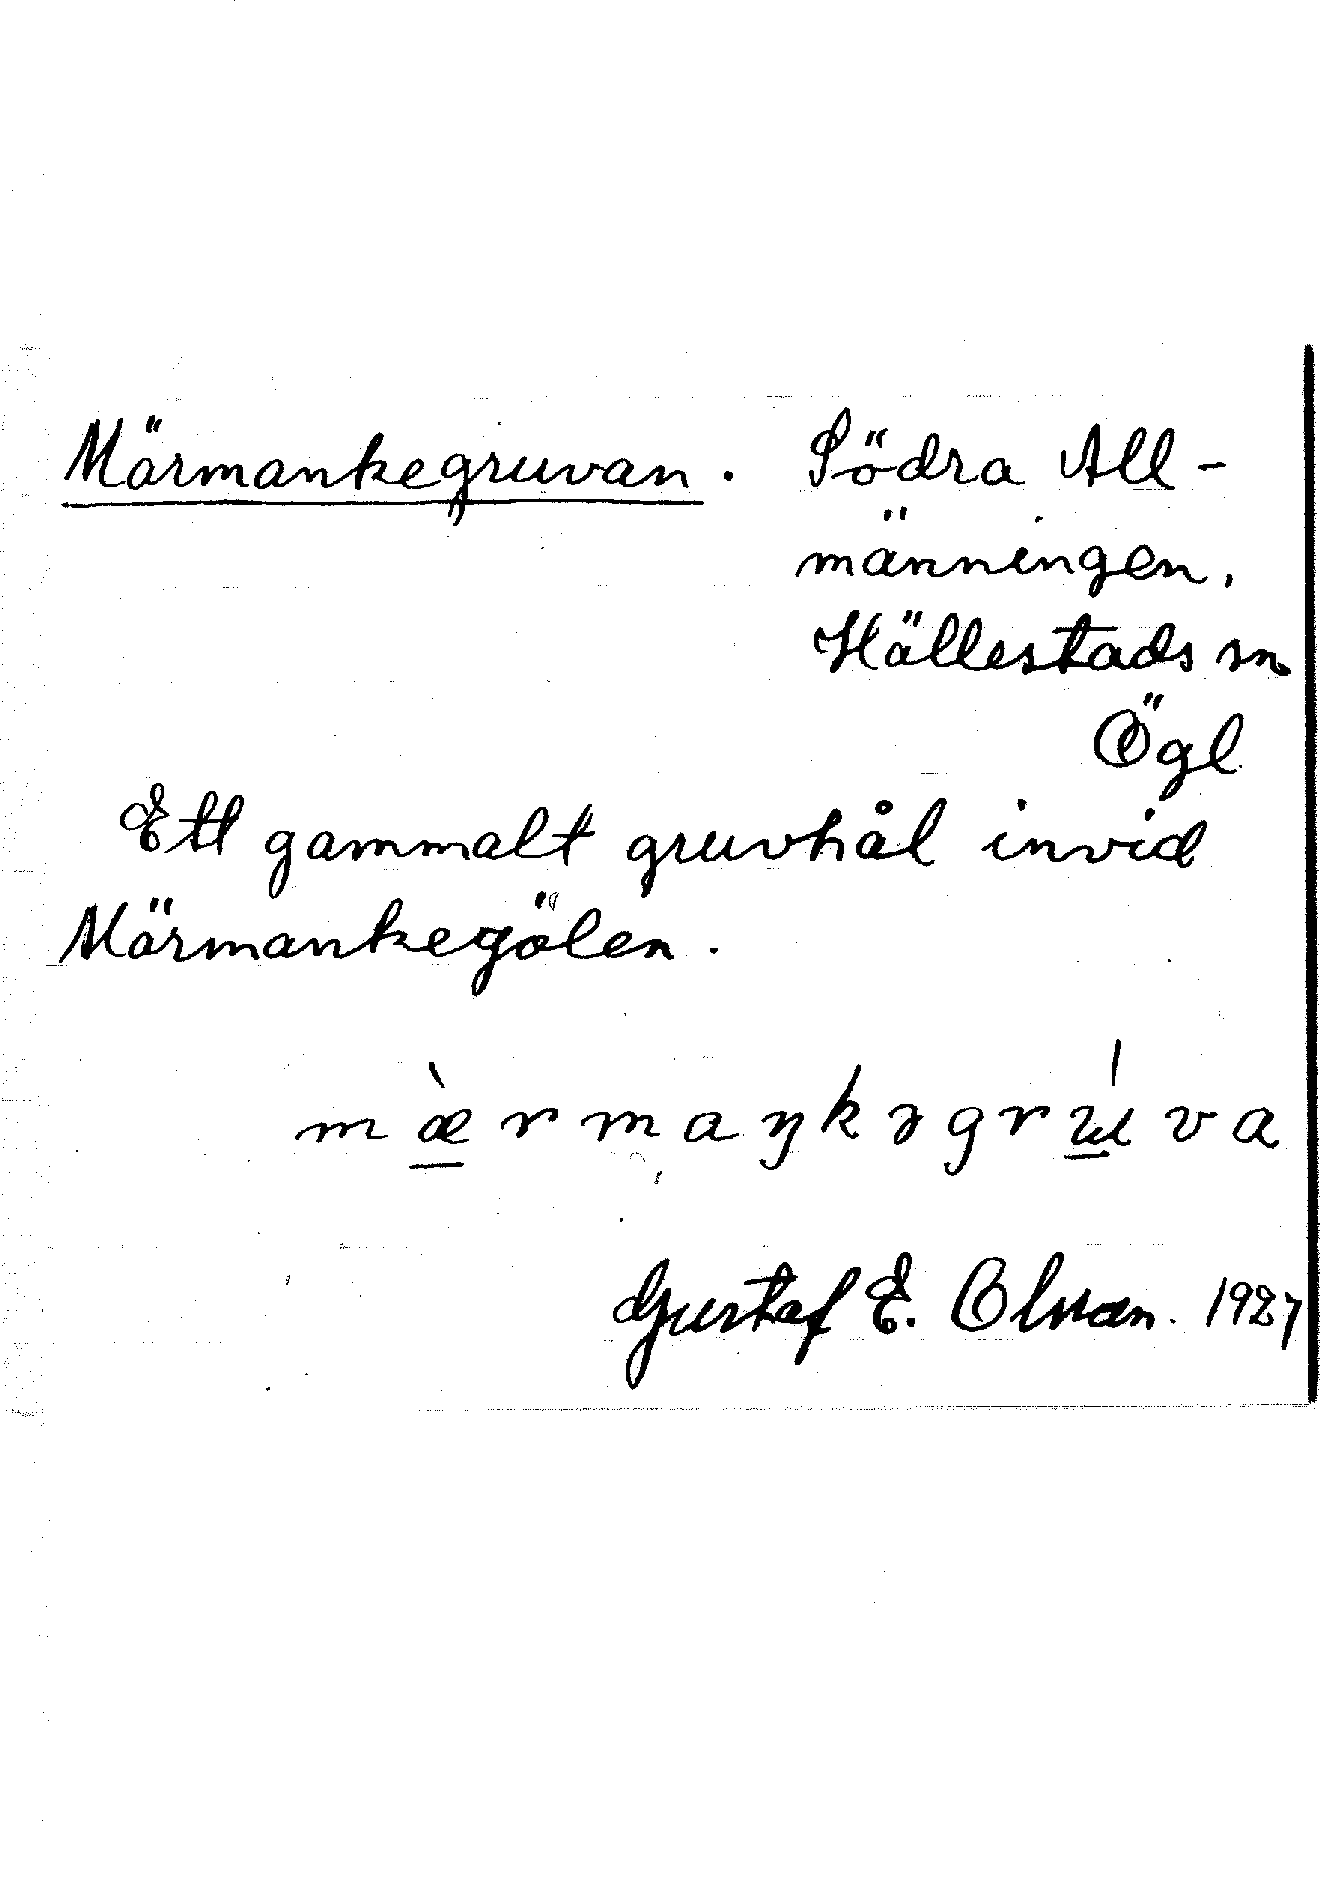 Märmankegruvan. Södra All-
männingen.
Hällestads sn
Ögl
Ett gammalt gruvhål invid
Märmankegölen.
mæ̀rmaŋkəgrúva
Gustaf E. Olsson. 1927